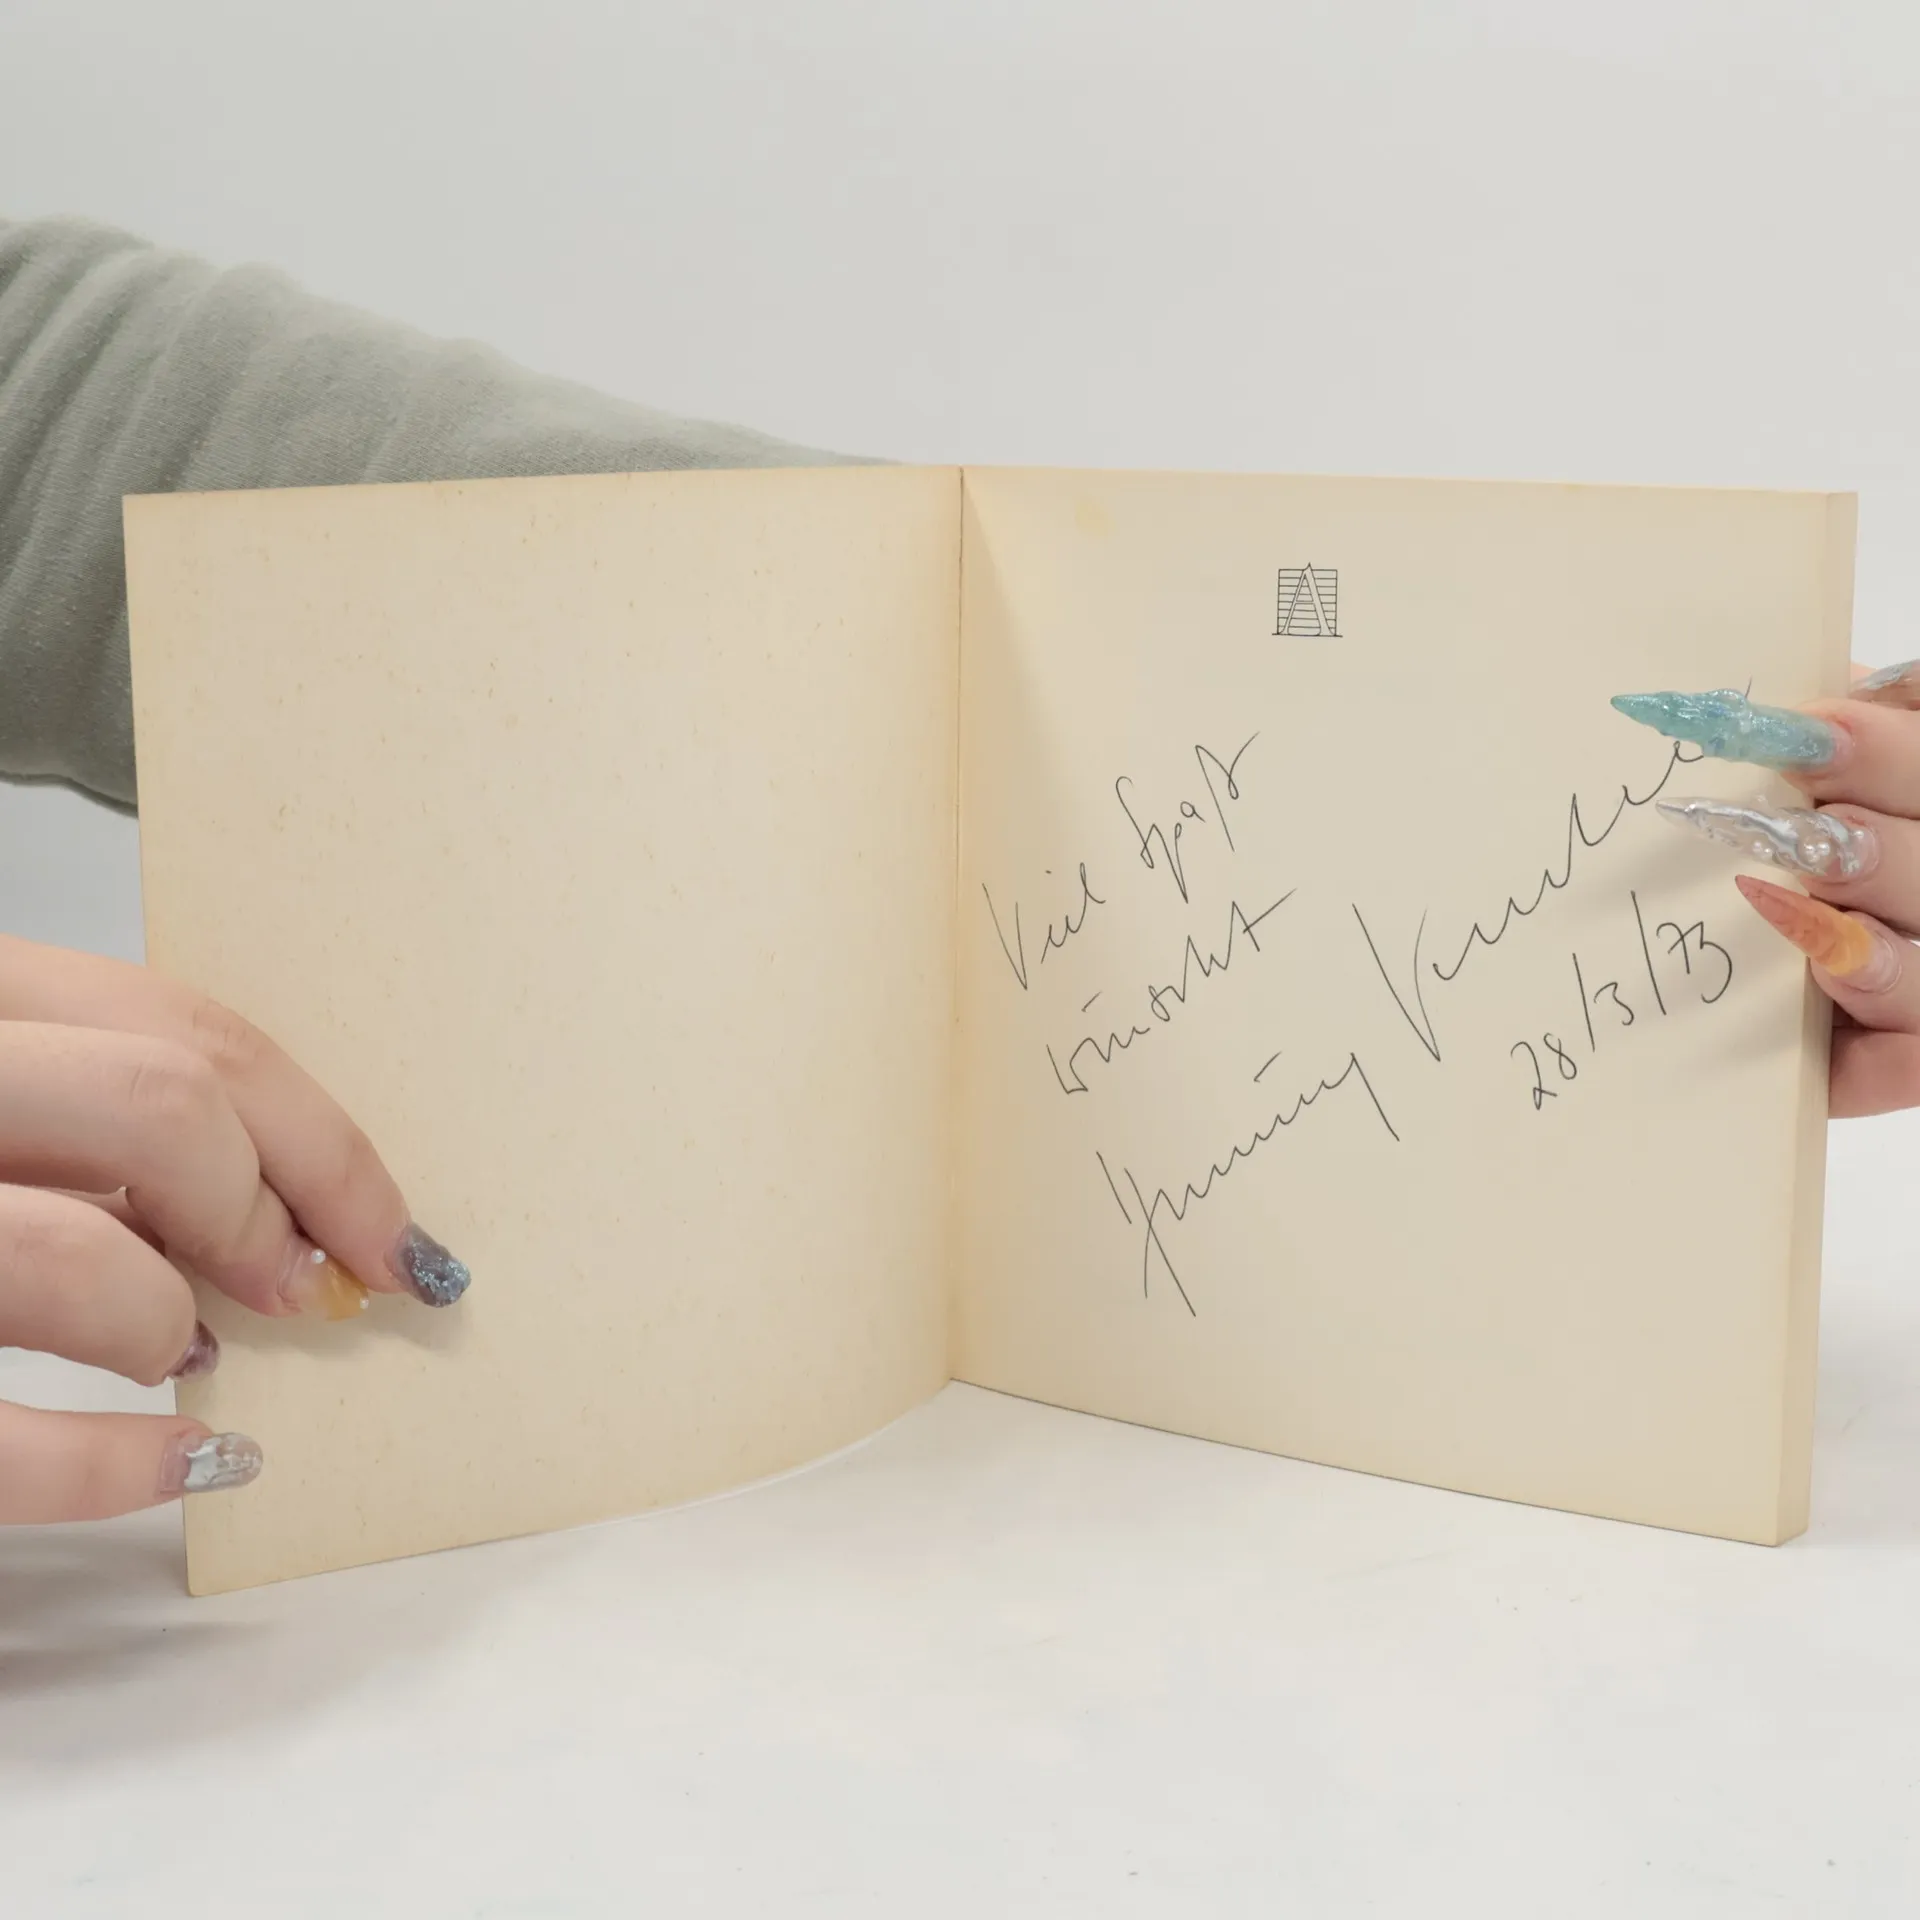 A
Viel Spaß
wünscht
Henning
28/3/73